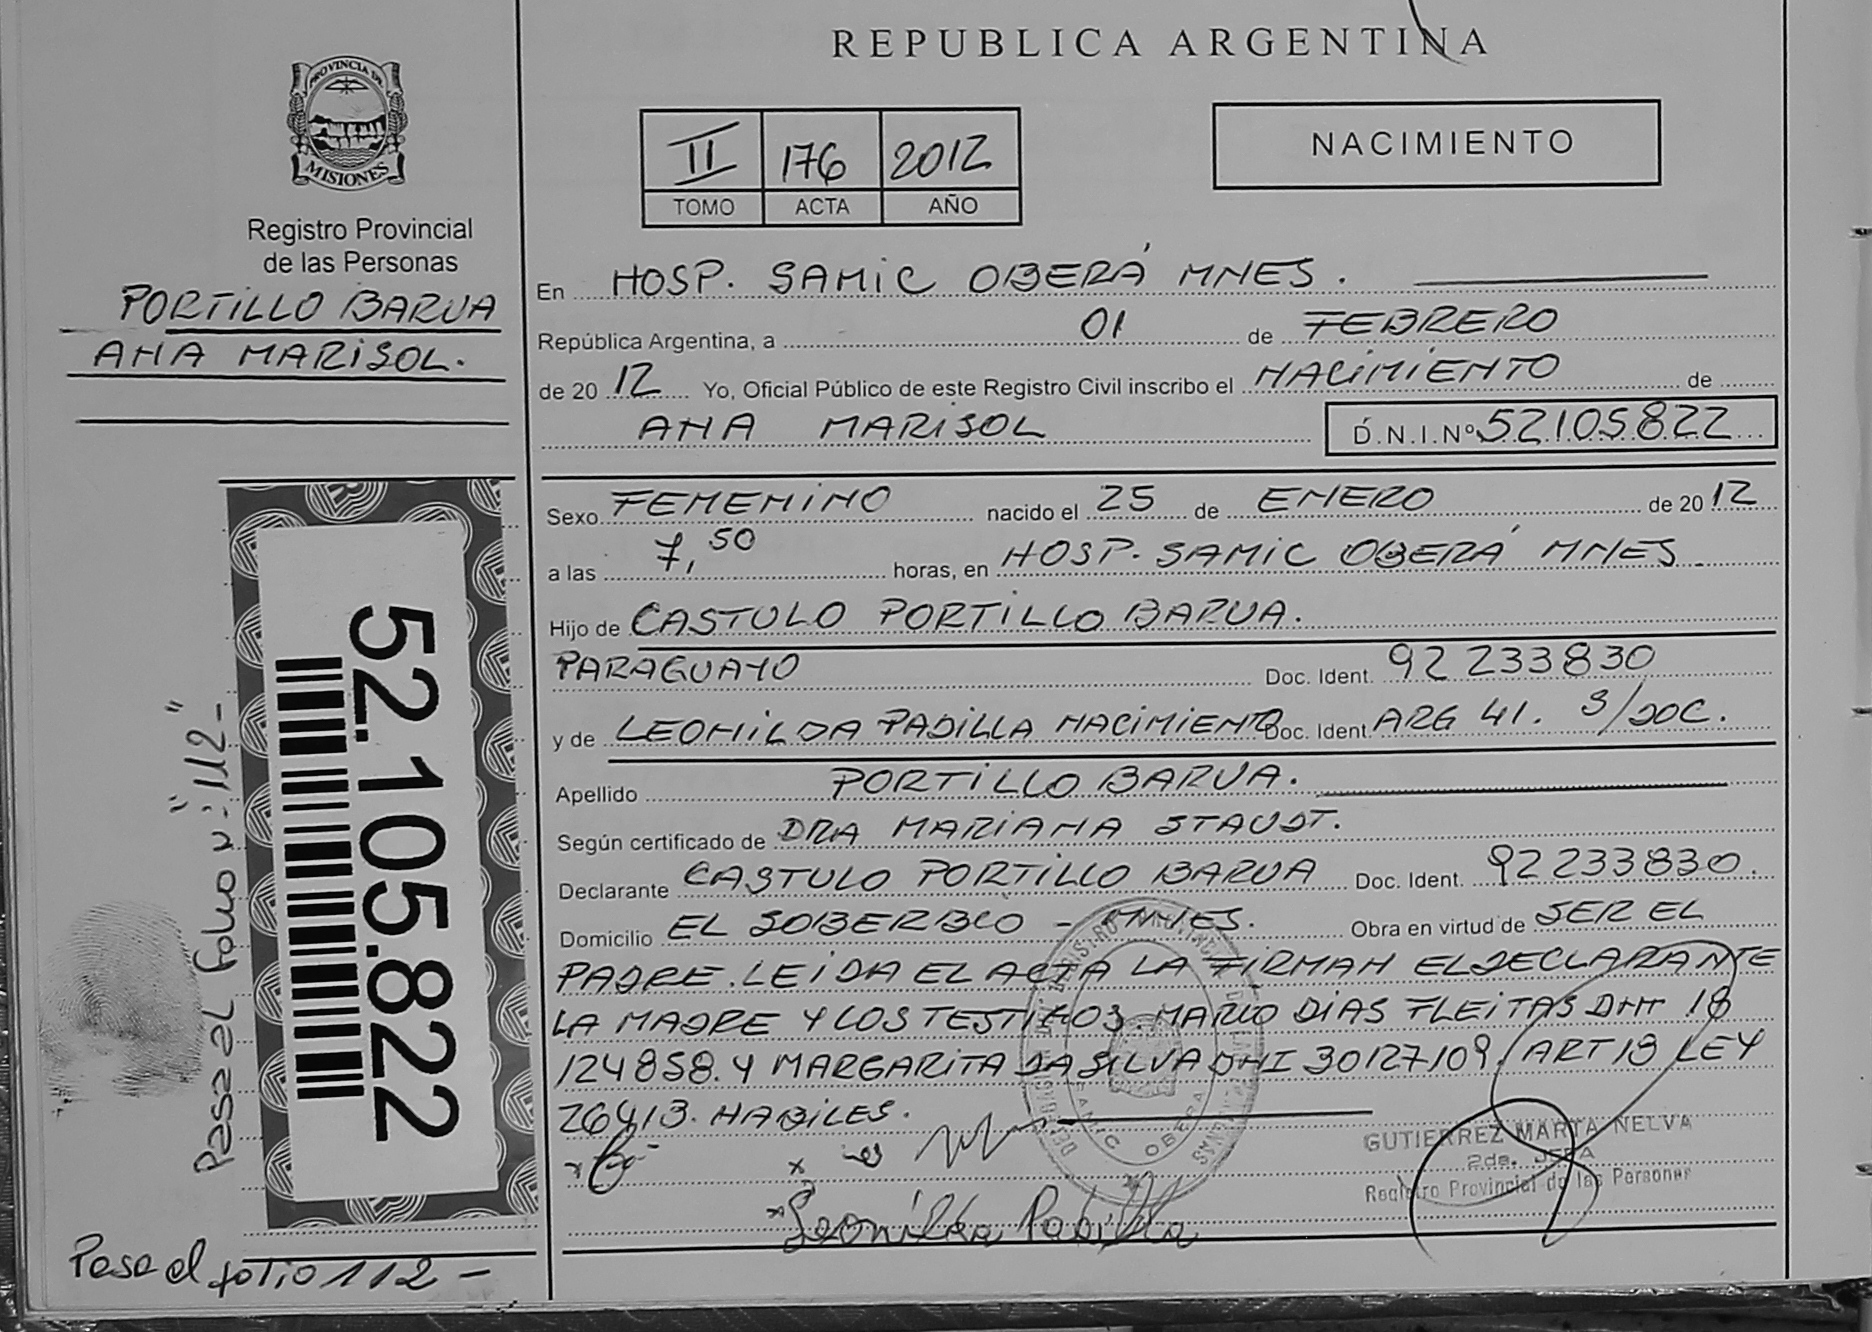 REPUBLICA ARGENTINA
PROVINCIA DE
MISIONES
Registro Provincial
de las Personas
PORTILLO BARUA
ANA MARISOL.
II 176 2012
TOMO ACTA AÑO
NACIMIENTO
En HOSP. SAMIC OBERÁ MNES.
República Argentina, a 01 de FEBRERO
de 2012 Yo, Oficial Público de este Registro Civil inscribo el NACIMIENTO de
ANA MARISOL D.N.I.Nº 52105822
Sexo FEMENINO nacido el 25 de ENERO de 2012
a las 7,50 horas, en HOSP. SAMIC OBERÁ MNES
Hijo de CASTULO PORTILLO BARUA.
PARAGUAYO Doc. Ident. 92 233830
y de LEONILDA PADILLA NACIMIENTO Doc. Ident. ARG 41. S/DOC.
Apellido PORTILLO BARUA.
Según certificado de DRA MARIANA STAUDT.
Declarante CASTULO PORTILLO BARUA Doc. Ident. 92233830.
Domicilio EL SOBERBIO - MNES. Obra en virtud de SER EL
PADRE. LEIDA EL ACTA LA FIRMAN EL DECLARANTE
LA MADRE Y LOS TESTIGOS. MARIO DIAS FLEITAS DNI 18
124858. Y MARGARITA DA SILVA DNI 30127109. ART 18 LEY
26413. HABILES.
Leonilda Padilla
GUTIERREZ MARTA NELVA
2da. JEFA
Registro Provincial de las Personas
SAMIC OBERA
52.105.822
Pasa al folio nº "112"-
Pasa al folio 112-